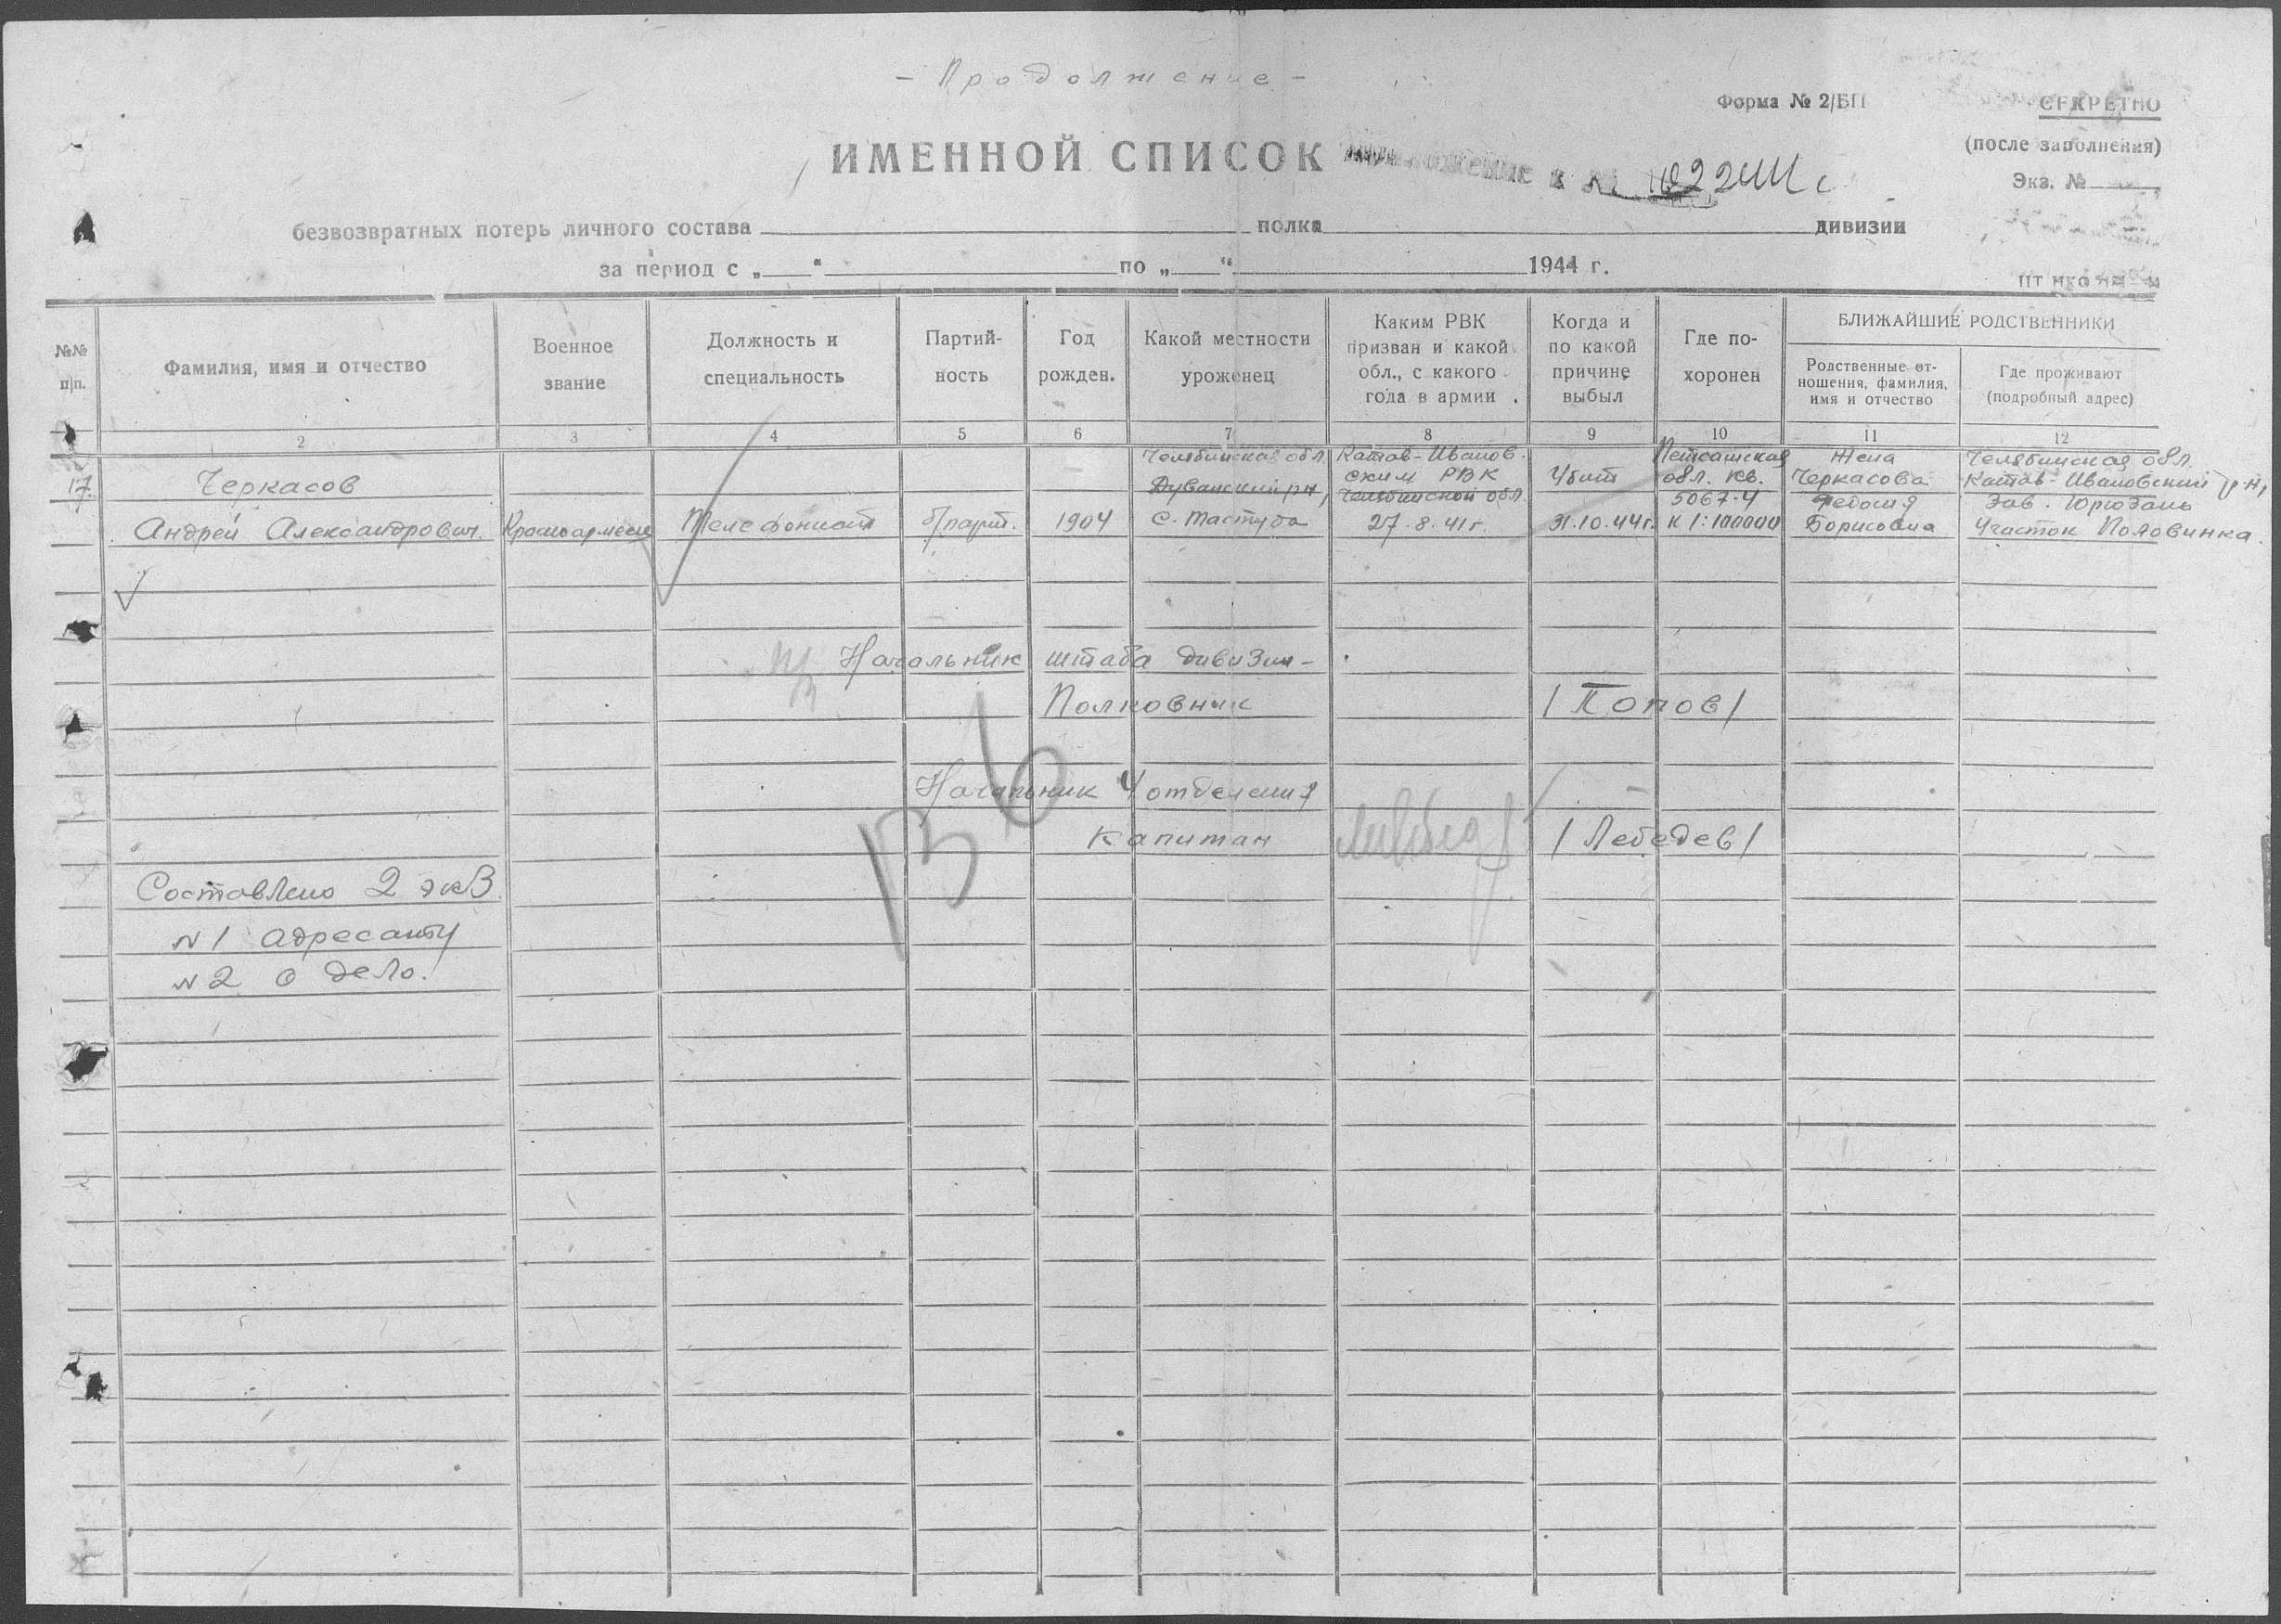 - Продолжение -
Форма № 2/БП
СЕКРЕТНО
(после заполнения)
Экз. №
ИМЕННОЙ СПИСОК
безвозвратных потерь личного состава полка дивизии
за период с „ “ по „ “ 1944 г.
№№ п/п.
Фамилия, имя и отчество
Военное звание
Должность и специальность
Партий-
ность
Год рожден.
Какой местности уроженец
Каким РВК
призван и какой
обл., с какого
года в армии
Когда и
по какой
причине
выбыл
Где по-
хоронен
БЛИЖАЙШИЕ РОДСТВЕННИКИ
Родственные от-
ношения, фамилия,
имя и отчество
Где проживают
(подробный адрес)
2 3 4 5 6 7 8 9 10 11 12
17.
Черкасов
Андрей Александрович.
Красноармеец
Телефонист
б/парт.
1904
Челябинская обл
Дуванский рн,
с. Тастуба
Катав-Иванов-
ским РВК
Челябинской обл.
27.8.41г.
Убит
31.10.44г.
обл. кв.
5067-4
к 1:100000
Жена
Черкасова
Федосия
Борисовна
Челябинская обл.
Катав-Ивановский р-н,
Зав. Юрюзань
Участок Половинка.
Начальник штаба дивизии-
Полковник /Попов/
Начальник 4 отделения
Капитан /Лебедев/
Составлено 2 экз.
№1 адресату
№2 в дело.